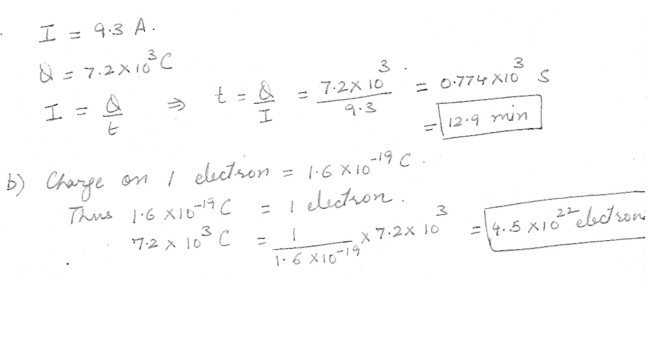 I = 9.3 A.
Q = 7.2 × 10³ C
I = Q/t ⇒ t = Q/I = 7.2 × 10³/9.3 = 0.774 × 10³ s
= 12.9 min
b) Charge on 1 electron = 1.6 × 10⁻¹⁹ C.
Thus 1.6 × 10⁻¹⁹ C = 1 electron.
7.2 × 10³ C = 1/1.6 × 10⁻¹⁹ × 7.2 × 10³ = 4.5 × 10²² electron